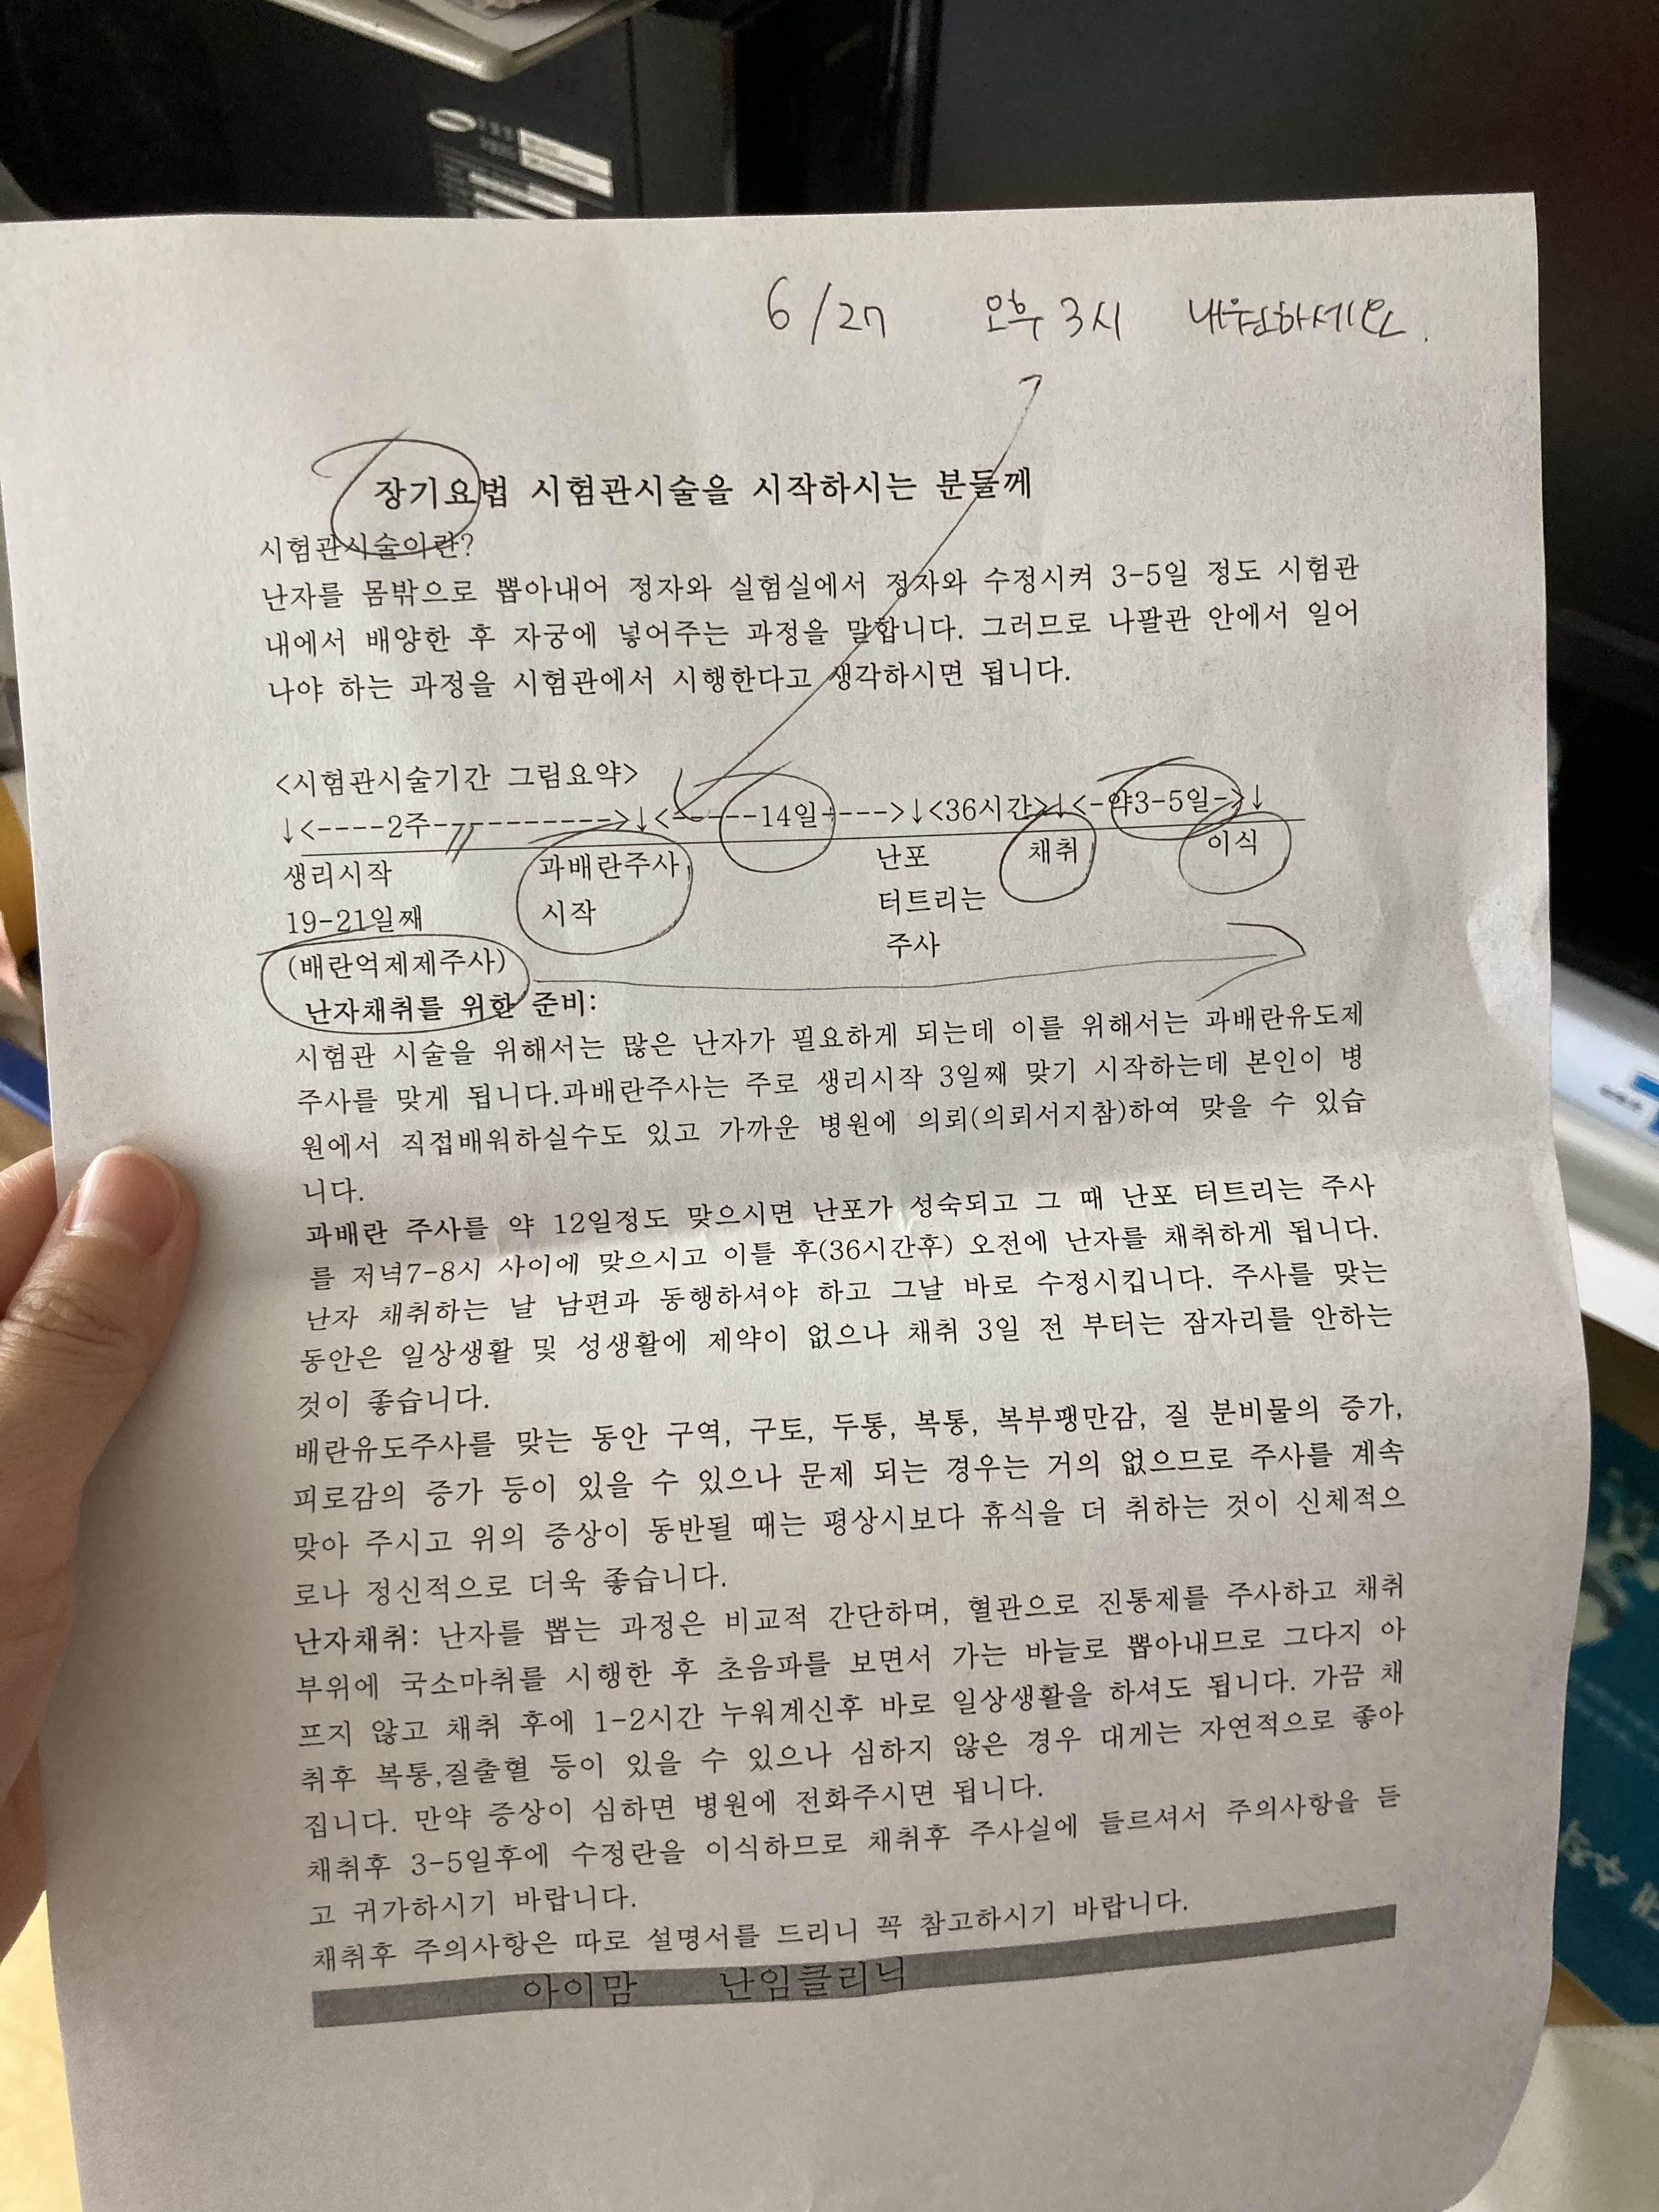 6/27 오후 3시 내원하세요.
장기요법 시험관시술을 시작하시는 분들께
시험관시술이란?
난자를 몸밖으로 뽑아내어 정자와 실험실에서 정자와 수정시켜 3-5일 정도 시험관
내에서 배양한 후 자궁에 넣어주는 과정을 말합니다. 그러므로 나팔관 안에서 일어
나야 하는 과정을 시험관에서 시행한다고 생각하시면 됩니다.
<시험관시술기간 그림요약>
↓<----2주----------->↓<------14일----->↓<36시간>↓<-약3-5일->↓
생리시작 과배란주사 난포 채취 이식
19-21일째 시작 터트리는
(배란억제제주사) 주사
난자채취를 위한 준비:
시험관 시술을 위해서는 많은 난자가 필요하게 되는데 이를 위해서는 과배란유도제
주사를 맞게 됩니다.과배란주사는 주로 생리시작 3일째 맞기 시작하는데 본인이 병
원에서 직접배워하실수도 있고 가까운 병원에 의뢰(의뢰서지참)하여 맞을 수 있습
니다.
과배란 주사를 약 12일정도 맞으시면 난포가 성숙되고 그 때 난포 터트리는 주사
를 저녁7-8시 사이에 맞으시고 이틀 후(36시간후) 오전에 난자를 채취하게 됩니다.
난자 채취하는 날 남편과 동행하셔야 하고 그날 바로 수정시킵니다. 주사를 맞는
동안은 일상생활 및 성생활에 제약이 없으나 채취 3일 전 부터는 잠자리를 안하는
것이 좋습니다.
배란유도주사를 맞는 동안 구역, 구토, 두통, 복통, 복부팽만감, 질 분비물의 증가,
피로감의 증가 등이 있을 수 있으나 문제 되는 경우는 거의 없으므로 주사를 계속
맞아 주시고 위의 증상이 동반될 때는 평상시보다 휴식을 더 취하는 것이 신체적으
로나 정신적으로 더욱 좋습니다.
난자채취: 난자를 뽑는 과정은 비교적 간단하며, 혈관으로 진통제를 주사하고 채취
부위에 국소마취를 시행한 후 초음파를 보면서 가는 바늘로 뽑아내므로 그다지 아
프지 않고 채취 후에 1-2시간 누워계신후 바로 일상생활을 하셔도 됩니다. 가끔 채
취후 복통,질출혈 등이 있을 수 있으나 심하지 않은 경우 대게는 자연적으로 좋아
집니다. 만약 증상이 심하면 병원에 전화주시면 됩니다.
채취후 3-5일후에 수정란을 이식하므로 채취후 주사실에 들르셔서 주의사항을 듣
고 귀가하시기 바랍니다.
채취후 주의사항은 따로 설명서를 드리니 꼭 참고하시기 바랍니다.
아이맘 난임클리닉